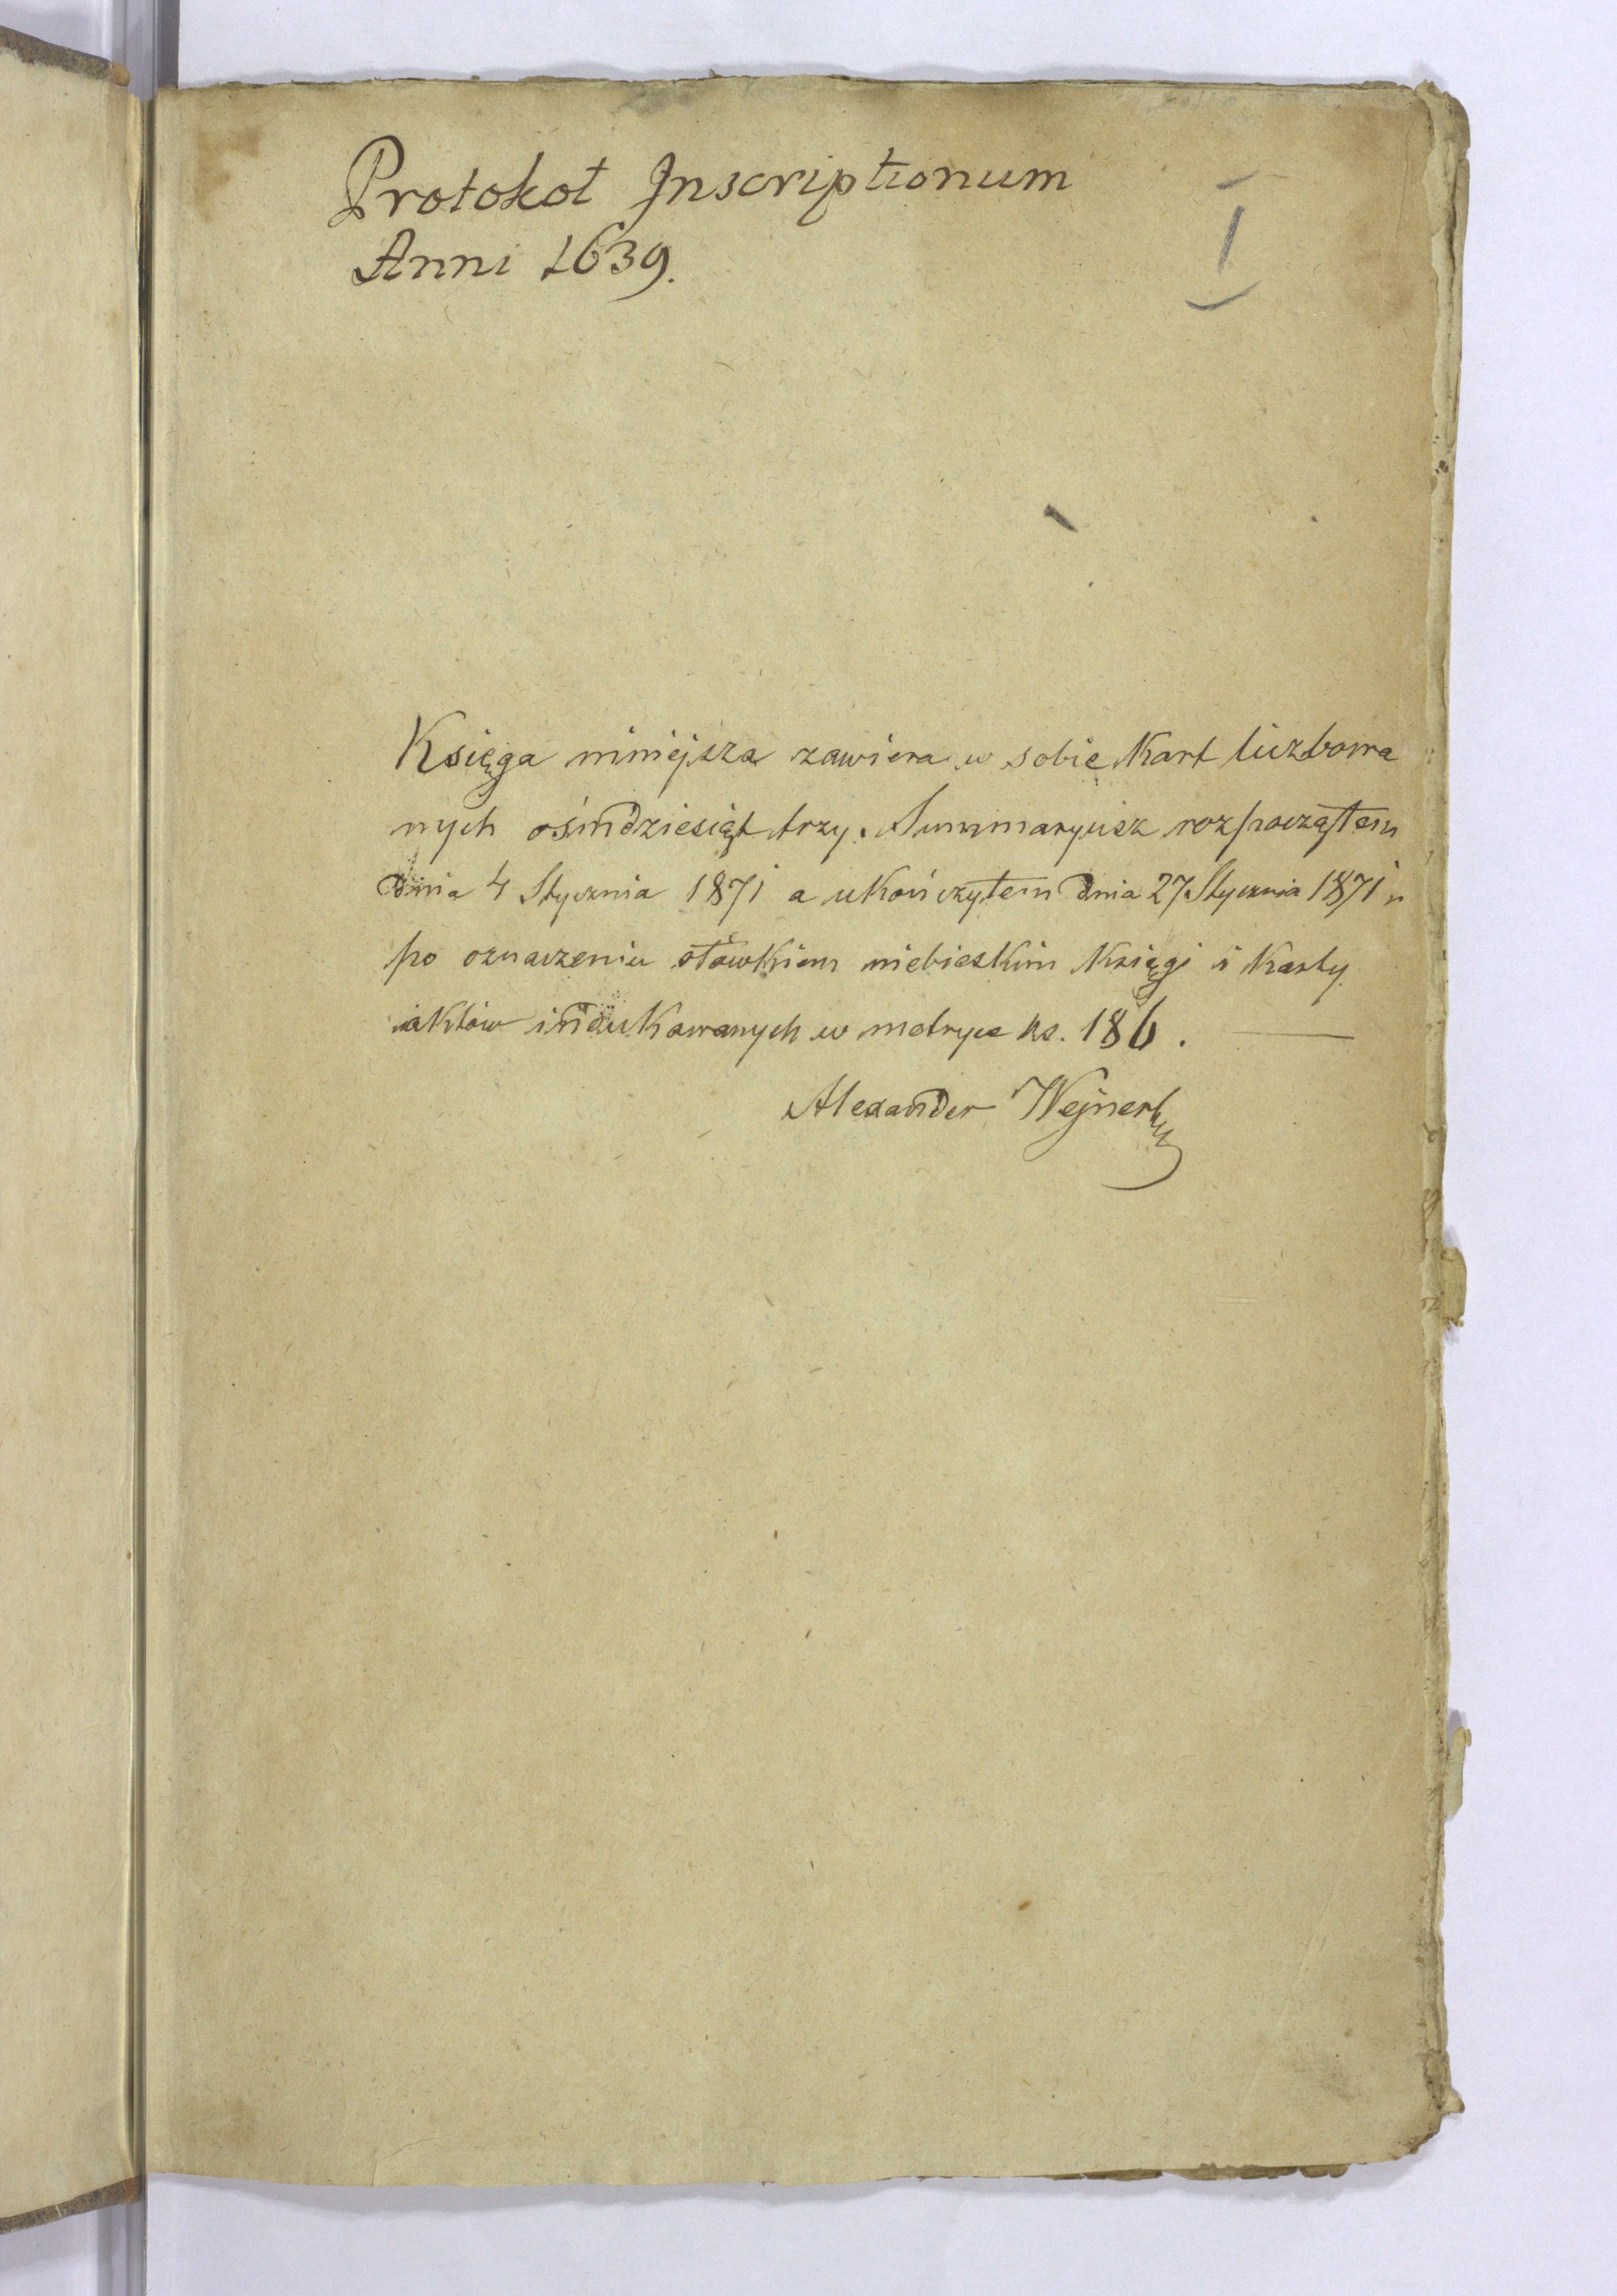 Protokoł Inscriptionum
Anni 1639.
I
Księga niniejsza zawiera w sobie Kart liczbowa
nych ośmdziesiąt trzy. Summaryusz rozpocząłem
dnia 4 Stycznia 1871 a ukończyłem dnia 27 Stycznia 1871 r
po oznaczeniu ołówkiem niebieskim Księgi i Karty
aktów indukowanych w metryce ks. 186.
Alexander Wejnert